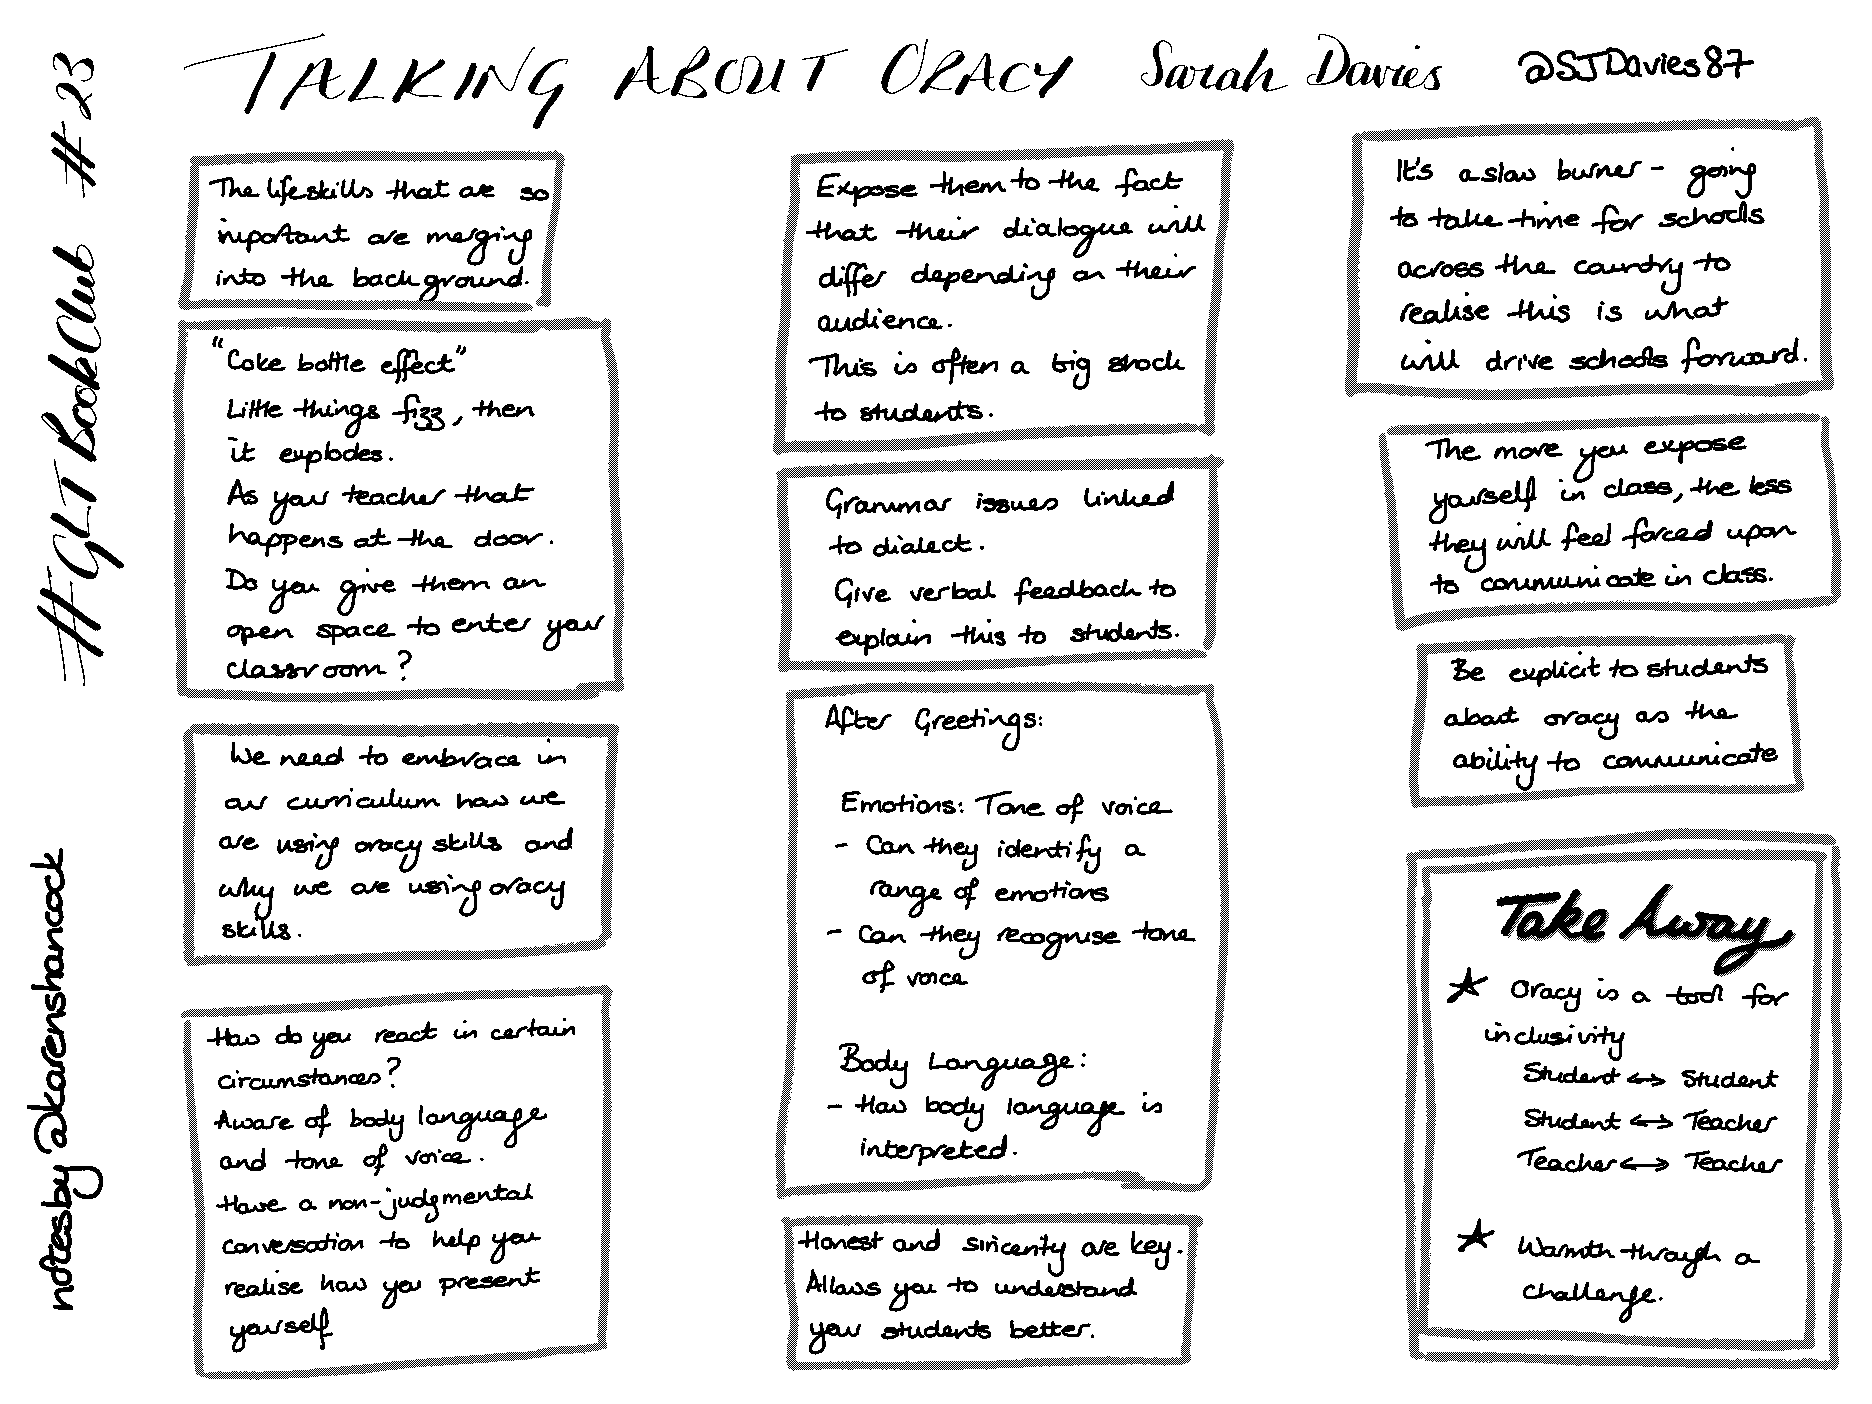 TALKING ABOUT ORACY Sarah Davies @SJDavies87
#GLTBookClub #23
notesby @karenshancock
The lifeskills that are so
important are merging
into the background.
"Coke bottle effect"
Little things fizz, then
it explodes.
As your teacher that
happens at the door.
Do you give them an
open space to enter your
classroom?
We need to embrace in
our curriculum how we
are using oracy skills and
why we are using oracy
skills.
How do you react in certain
circumstances?
Aware of body language
and tone of voice.
Have a non-judgmental
conversation to help you
realise how you present
yourself
Expose them to the fact
that their dialogue will
differ depending on their
audience.
This is often a big shock
to students.
Grammar issues linked
to dialect.
Give verbal feedback to
explain this to students.
After Greetings:
Emotions: Tone of voice
- Can they identify a
range of emotions
- Can they recognise tone
of voice
Body Language:
- How body language is
interpreted.
Honest and sincerity are key.
Allows you to understand
your students better.
It's a slow burner - going
to take time for schools
across the country to
realise this is what
will drive schools forward.
The more you expose
yourself in class, the less
they will feel forced upon
to communicate in class.
Be explicit to students
about oracy as the
ability to communicate
Take Away
★ Oracy is a tool for
inclusivity
Student ↔ Student
Student ↔ Teacher
Teacher ↔ Teacher
★ Warmth through a
challenge.